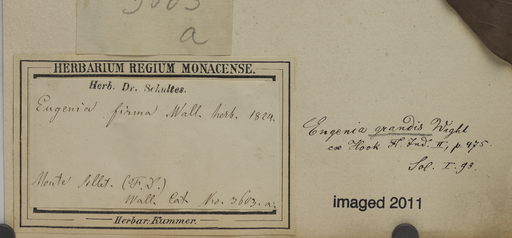 3603
a
HERBARIUM REGIUM MONACENSE.
Herb. Dr. Schultes.
Eugenia firma Wall. herb. 1824.
Monte
Wall. Cat. Nro. 3603. a.
Herbar. Kummer.
Eugenia grandis Wight
ex Hook Fl. Ind. II, p. 475.
imaged 2011